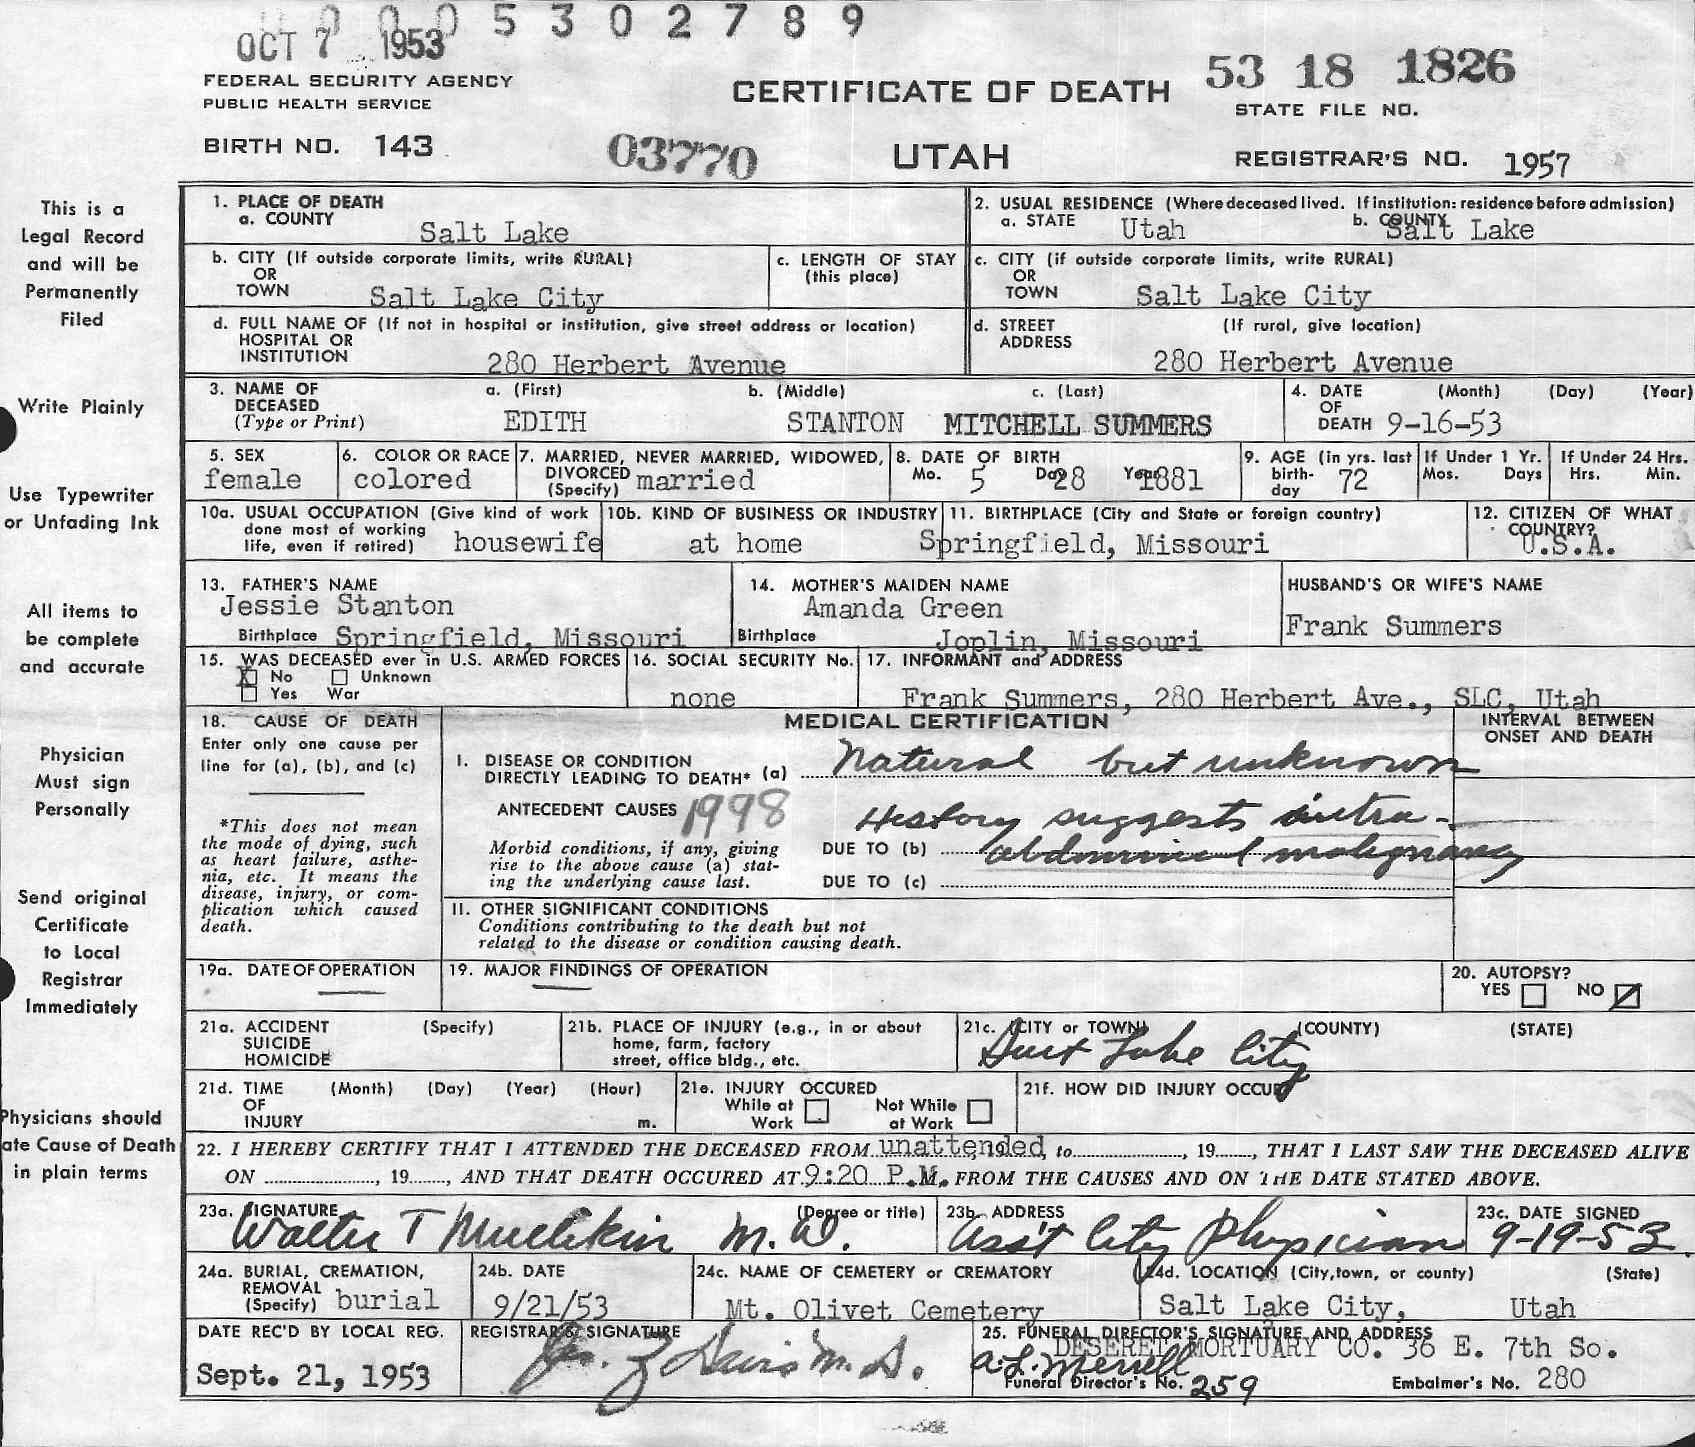 0 0 0 5 3 0 2 7 8 9
OCT 7 1953
FEDERAL SECURITY AGENCY
PUBLIC HEALTH SERVICE
CERTIFICATE OF DEATH
53 18 1826
STATE FILE NO.
BIRTH NO. 143
03770
UTAH
REGISTRAR'S NO. 1957
This is a
Legal Record
and will be
Permanently
Filed
Write Plainly
Use Typewriter
or Unfading Ink
All items to
be complete
and accurate
Physician
Must sign
Personally
Send original
Certificate
to Local
Registrar
Immediately
Physicians should
ate Cause of Death
in plain terms
1. PLACE OF DEATH
a. COUNTY Salt Lake
2. USUAL RESIDENCE (Where deceased lived. If institution: residence before admission)
a. STATE Utah b. COUNTY Salt Lake
b. CITY (If outside corporate limits, write RURAL)
OR
TOWN Salt Lake City
c. LENGTH OF STAY
(this place)
c. CITY (if outside corporate limits, write RURAL)
OR
TOWN Salt Lake City
d. FULL NAME OF (If not in hospital or institution, give street address or location)
HOSPITAL OR
INSTITUTION 280 Herbert Avenue
d. STREET (If rural, give location)
ADDRESS 280 Herbert Avenue
3. NAME OF a. (First) b. (Middle) c. (Last)
DECEASED
(Type or Print) EDITH STANTON MITCHELL SUMMERS
4. DATE (Month) (Day) (Year)
OF
DEATH 9-16-53
5. SEX
female
6. COLOR OR RACE
colored
7. MARRIED, NEVER MARRIED, WIDOWED,
DIVORCED married
(Specify)
8. DATE OF BIRTH
Mo. 5 Day 28 Year 1881
9. AGE (in yrs. last
birth- 72
day
If Under 1 Yr.
Mos. Days
If Under 24 Hrs.
Hrs. Min.
10a. USUAL OCCUPATION (Give kind of work
done most of working
life, even if retired) housewife
10b. KIND OF BUSINESS OR INDUSTRY
at home
11. BIRTHPLACE (City and State or foreign country)
Springfield, Missouri
12. CITIZEN OF WHAT
COUNTRY?
U.S.A.
13. FATHER'S NAME
Jessie Stanton
Birthplace Springfield, Missouri
14. MOTHER'S MAIDEN NAME
Amanda Green
Birthplace Joplin, Missouri
HUSBAND'S OR WIFE'S NAME
Frank Summers
15. WAS DECEASED ever in U.S. ARMED FORCES
X No Unknown
Yes War
16. SOCIAL SECURITY No.
none
17. INFORMANT and ADDRESS
Frank Summers, 280 Herbert Ave., SLC, Utah
18. CAUSE OF DEATH
Enter only one cause per
line for (a), (b), and (c)
*This does not mean
the mode of dying, such
as heart failure, asthe-
nia, etc. It means the
disease, injury, or com-
plication which caused
death.
MEDICAL CERTIFICATION
INTERVAL BETWEEN
ONSET AND DEATH
I. DISEASE OR CONDITION
DIRECTLY LEADING TO DEATH* (a) Natural but unknown
ANTECEDENT CAUSES 1998
History suggests intra-
Morbid conditions, if any, giving
rise to the above cause (a) stat-
ing the underlying cause last.
DUE TO (b) abdominal malignancy
DUE TO (c)
II. OTHER SIGNIFICANT CONDITIONS
Conditions contributing to the death but not
related to the disease or condition causing death.
19a. DATE OF OPERATION
19. MAJOR FINDINGS OF OPERATION
20. AUTOPSY?
YES NO
21a. ACCIDENT (Specify)
SUICIDE
HOMICIDE
21b. PLACE OF INJURY (e.g., in or about
home, farm, factory
street, office bldg., etc.
21c. (CITY or TOWN) (COUNTY) (STATE)
Salt Lake City
21d. TIME (Month) (Day) (Year) (Hour)
OF
INJURY m.
21e. INJURY OCCURED
While at Work Not While at Work
21f. HOW DID INJURY OCCUR
22. I HEREBY CERTIFY THAT I ATTENDED THE DECEASED FROM unattended, to, 19, THAT I LAST SAW THE DECEASED ALIVE
ON, 19, AND THAT DEATH OCCURED AT 9:20 P.M. FROM THE CAUSES AND ON THE DATE STATED ABOVE.
23a. SIGNATURE (Degree or title)
Walter T M.D.
23b. ADDRESS
Ass't City Physician
23c. DATE SIGNED
9-19-53
24a. BURIAL, CREMATION,
REMOVAL
(Specify) burial
24b. DATE
9/21/53
24c. NAME OF CEMETERY or CREMATORY
Mt. Olivet Cemetery
24d. LOCATION (City, town, or county) (State)
Salt Lake City, Utah
DATE REC'D BY LOCAL REG.
Sept. 21, 1953
REGISTRAR'S SIGNATURE
Davis M.D.
25. FUNERAL DIRECTOR'S SIGNATURE AND ADDRESS
DESERET MORTUARY CO. 36 E. 7th So.
A.L. Merrell
Funeral Director's No. 259 Embalmer's No. 280